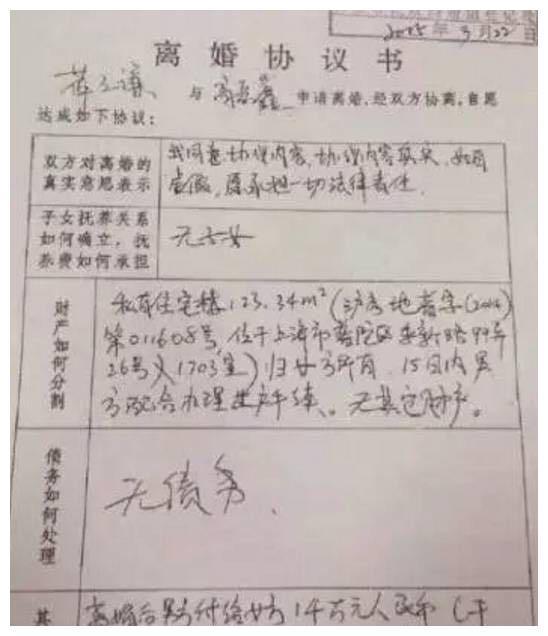 2015年3月22日
离婚协议书
薛之谦 与 高磊鑫 申请离婚,经双方协商,自愿
达成如下协议:
双方对离婚的
真实意思表示
我同意协议内容,协议内容真实,如有
虚假,愿承担一切法律责任.
子女抚养关系
如何确立,抚
养费如何承担
无子女
财产如何分割
私有住宅楼123.34m²(沪房地普字(2014)
第011608号,位于上海市普陀区 新路99弄
26号 1703室)归女方所有,15日内男
方配合办理过户手续。无其它财产。
债务如何处理
无债务.
其
离婚后男方付给女方1千万元人民币(千